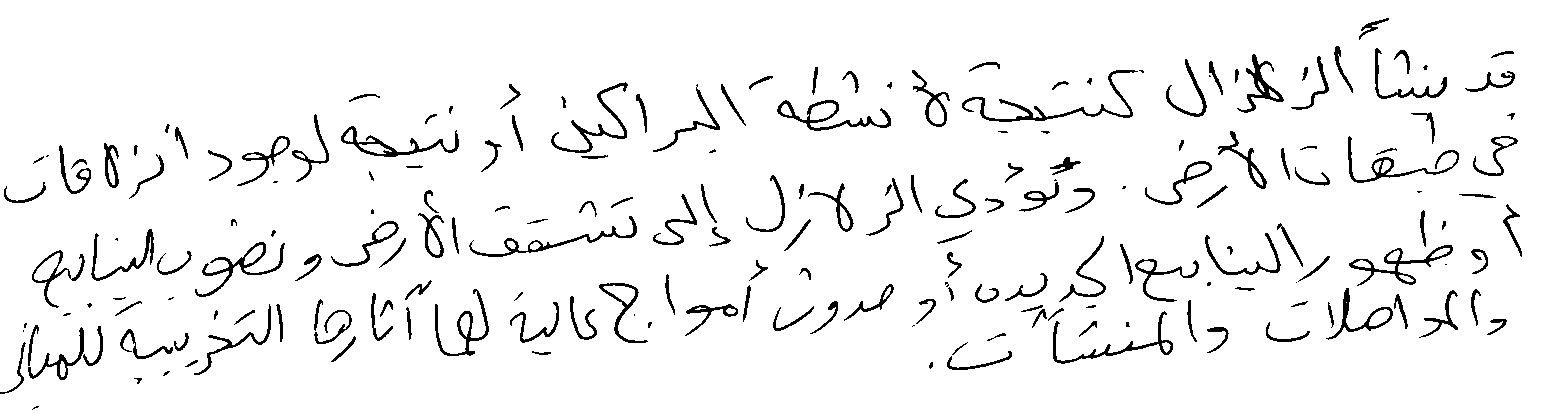 قد ينشأ الزلزال كنتيجة لأنشطة البراكين أو نتيجة لوجود انزلاقات
في طبقات الأرض. وتؤدي الزلازل إلى تشقق الأرض ونضوب الينابيع
أو ظهور الينابيع الجديدة أو حدوث أمواج عالية لها آثارها التخريبية للمباني
والمواصلات والمنشآت.